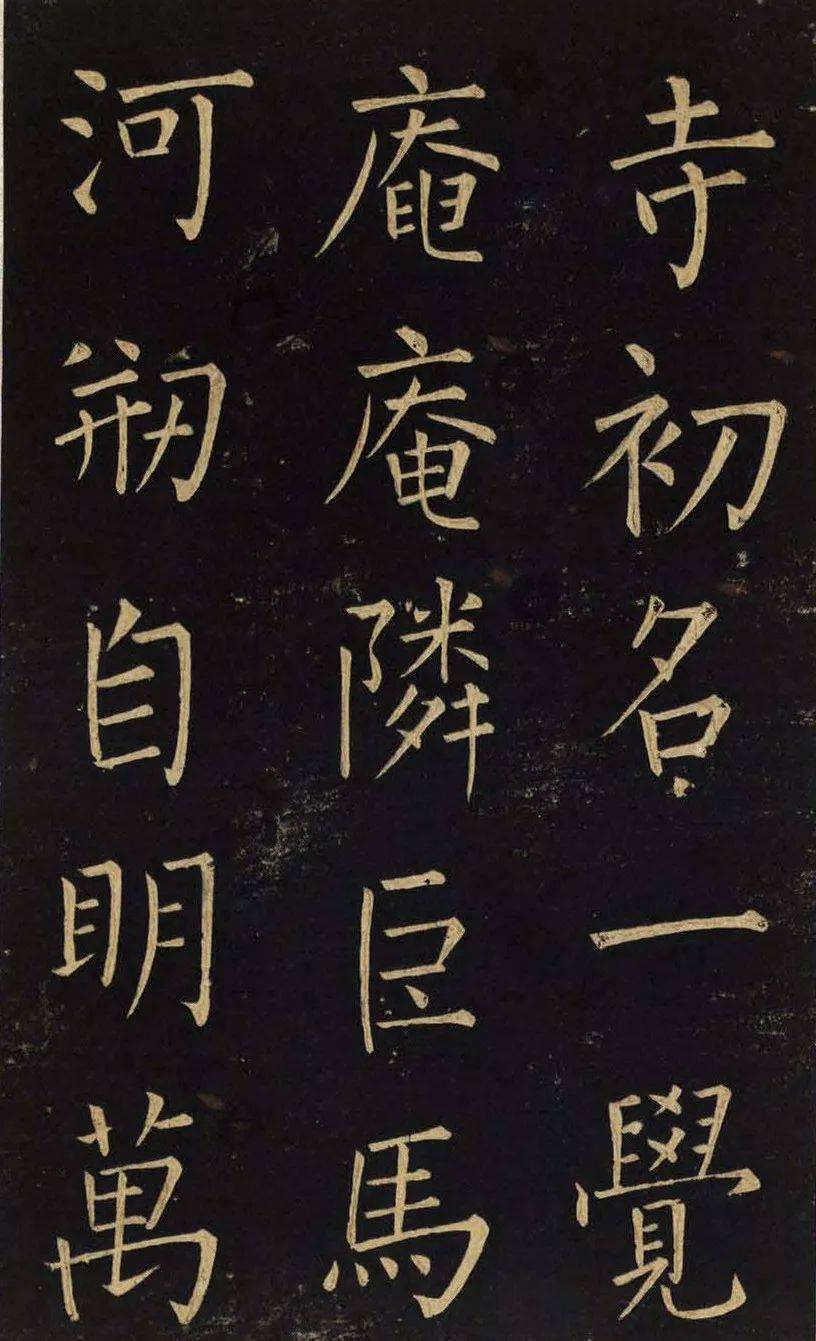 寺初名一覺
庵庵隣臣馬
河刱自明萬